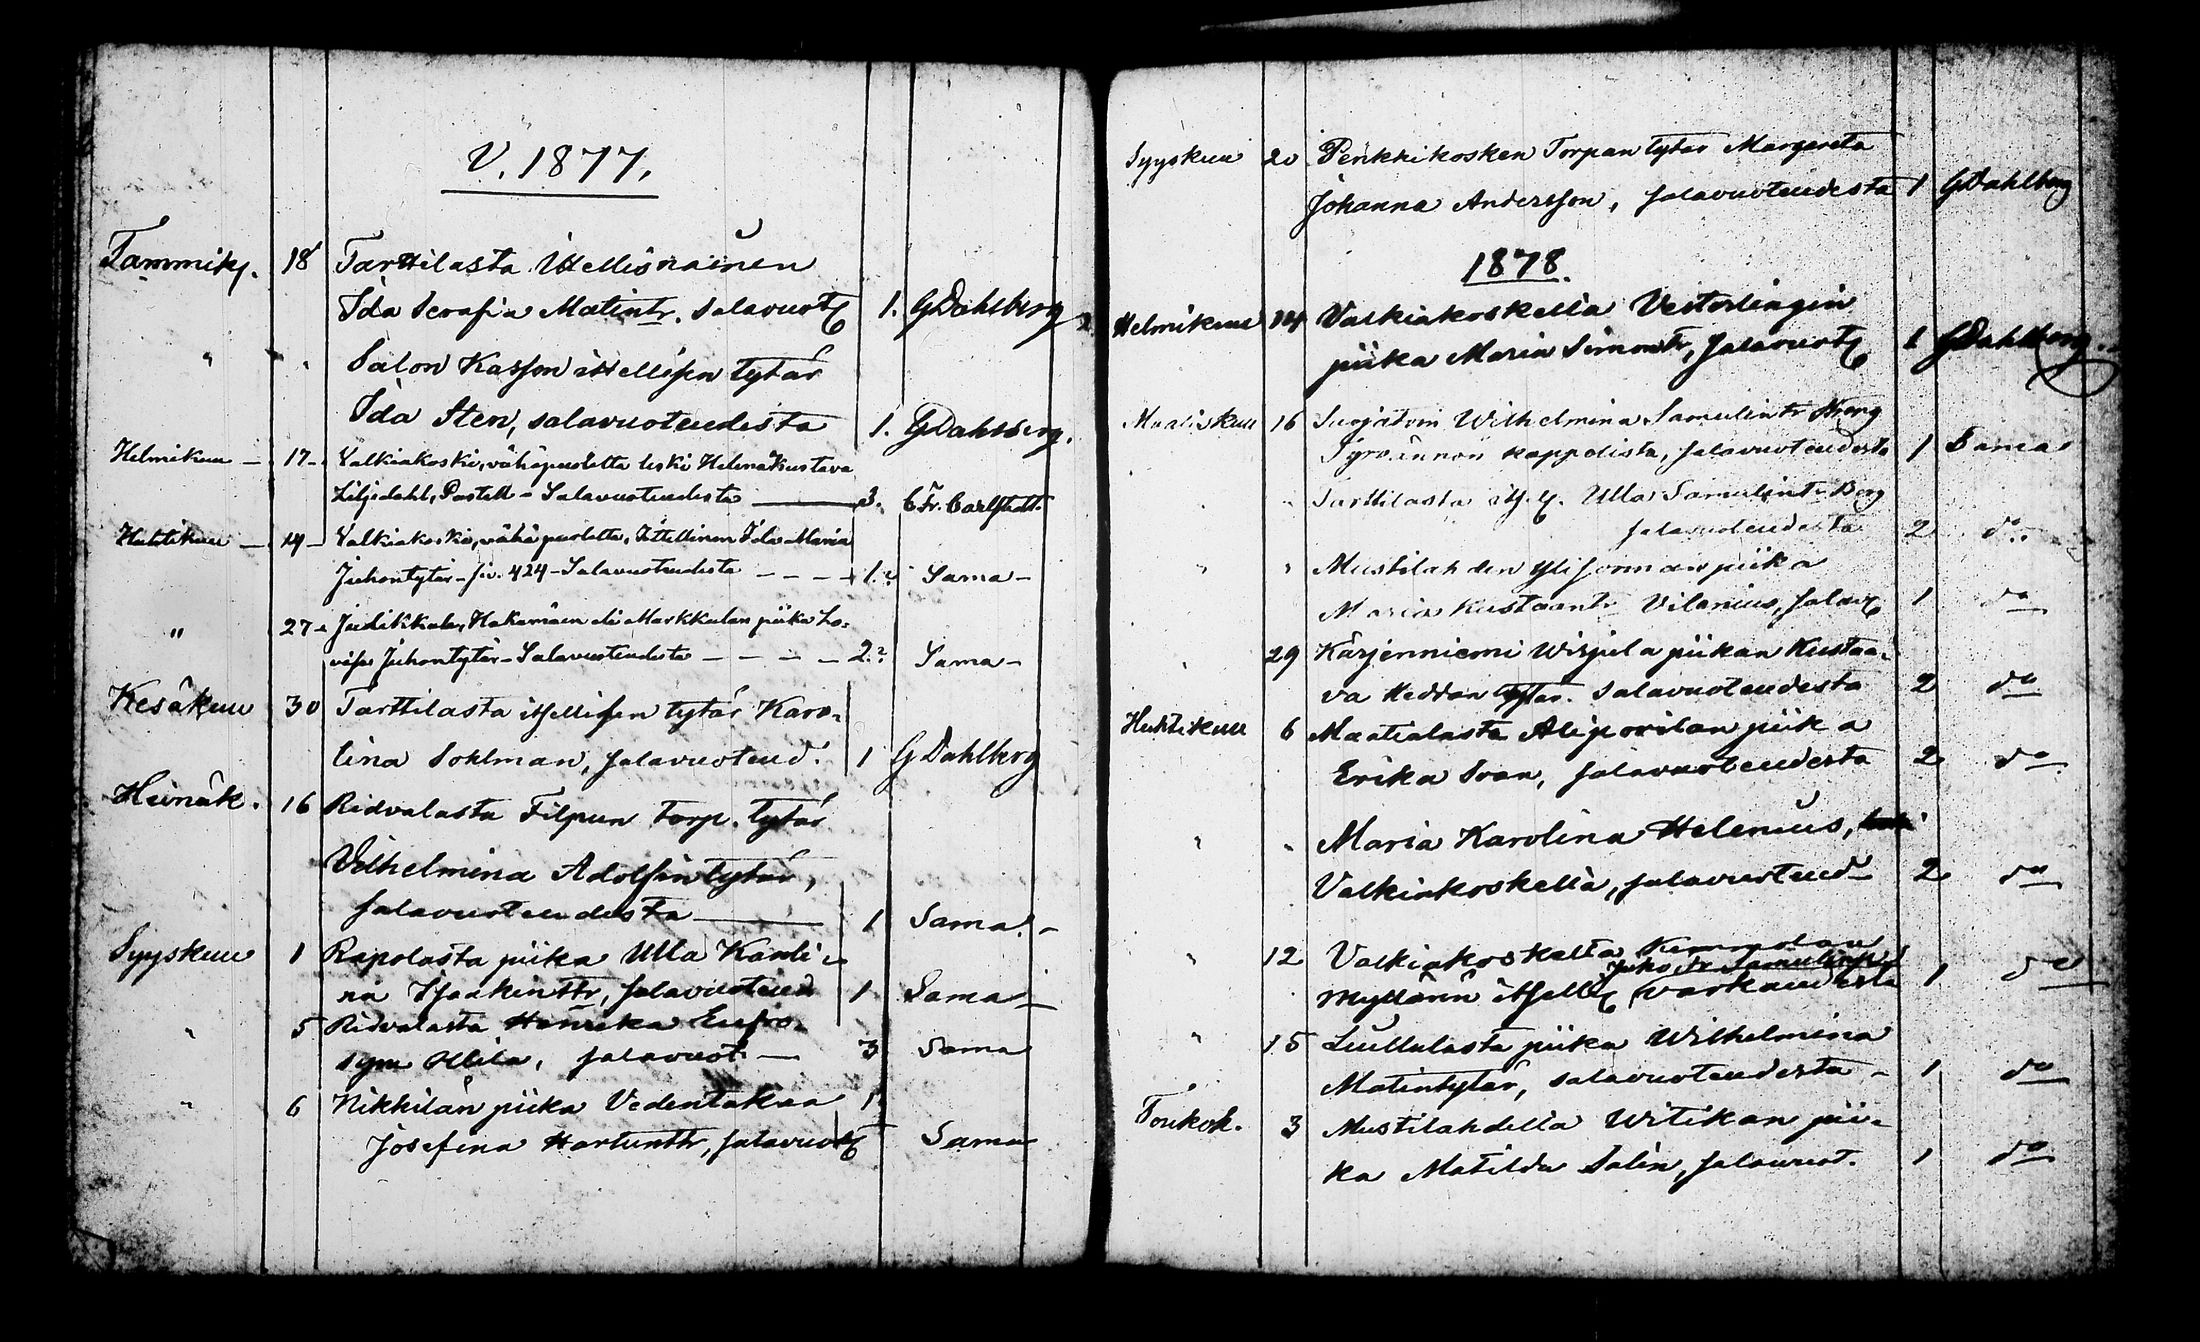 V. 1877.
Tammik. 18 Tarttilasta Ittellisnainen
Ida Serafia Matintr. salavuot 1. GDahlberg
" " Salon Kasson ittellisen tytär
Ida Sten, salavuoteudesta 1. GDahlberg.
Helmikuu – 17 – Valkiakoski, vähäpuoletta leski Helena Kustava
Liljedahl, Postell – Salavuoteudesta — 3. C Fr. Carlstedt.
Huhtikuu – 14 – Valkiakoski, vähäpuoletta, Ittellinen Ida Maria
Juhontytär – siv. 424 – Salavuoteudesta – – – 1. Sama –
" 27 – Judikkala, Hakamäen eli Markkulan piika Lo-
visa Juhontytär – Salavuoteudesta – – – – 2. Sama –
Kesäkuu 30 Tarttilasta itsellisen tytär Karo-
lina Sohlman, salavuoteud. 1 G Dahlberg
Heinäk. 16 Ridvalasta Filpun torp. tytär
Vilhelmina Adolfintytär,
salavuoteudesta — 1 Sama –
Syyskuu 1 Rapolasta piika Ulla Karoli-
na Isaakinttr, salavuoteud 1 Sama –
" 5 Ridvalasta Henrika Eufro-
syn Ollila, salavuot – 3 Sama
" 6 Nikkilän piika Vedentakaa 1
Josefina Hartunttr, salavuot Sama
Syyskuu 20 Penkkikosken Torpan tytär Margareta
Johanna Andersson, salavuoteudesta 1 GDahlberg
1878.
Helmikuu 14 Valkiakoskella Vesterlingin
piika Maria Simontr, salavuot 1 GDahlberg.
Maaliskuu 16 Wilhelmina Samulintr
Tyrvännön kappelista, salavuoteudesta 1 Sama
" " Tarttilasta its. Ulla Samulintr Berg
salavuoteudesta 2 do.
" " Mustilahden piika
Maria Kustaantr Vilenius, salav 1 do
" 29 Kärjenniemi Wirjula piikan Kustaa-
va Heddan tytär. salavuoteudesta 2 do
Huhtikuu 6 Maatialasta piika
Erika Ivan, salavuoteudesta 2 do
" " Maria Karolina Helenius,
Valkiakoskella, salavuoteud 2 do
" 12 Valkiakoskelta
Myllärin itsell varkaudesta 1 do
" 15 Luullalasta piika Wilhelmina
Matintytär, salavuoteudesta – 1 do
Toukok. 3 Mustilahdella Witikan pii-
ka Matilda Salin, salavuot. 1 do